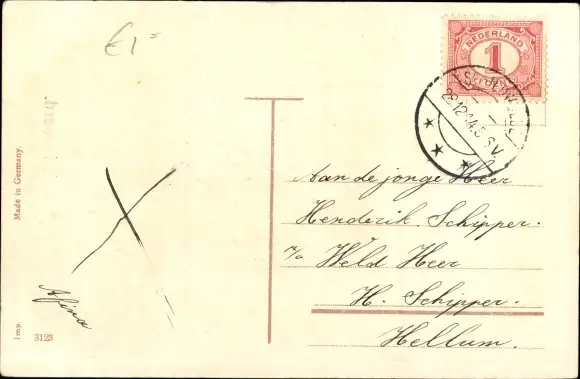 €1=
NEDERLAND
1
28.12.14.5-6V
Aan de jonge Heer
Henderik Schipper.
p/a Weld Heer
H. Schipper.
Hellum.
Made in Germany.
Afina
Imp. 3123